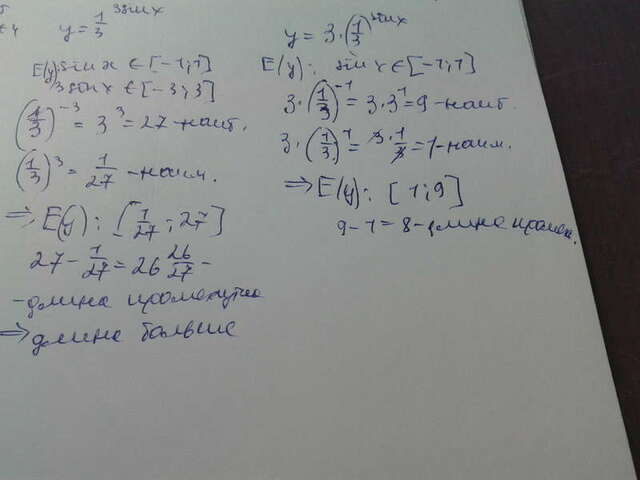 y = 1/3 ^ 3sin x
E(y): sin x ∈ [-1;1]
3 sin x ∈ [-3;3]
(1/3)^-3 = 3^3 = 27 - наиб.
(1/3)^3 = 1/27 - наим.
⇒ E(y): [1/27; 27]
27 - 1/27 = 26 26/27 -
- длина промежутка
⇒ длина больше
y = 3·(1/3)^sin x
E(y): sin x ∈ [-1;1]
3·(1/3)^-1 = 3·3^1 = 9 - наиб.
3·(1/3)^1 = 3·1/3 = 1 - наим.
⇒ E(y): [1;9]
9 - 1 = 8 - длина промеж.